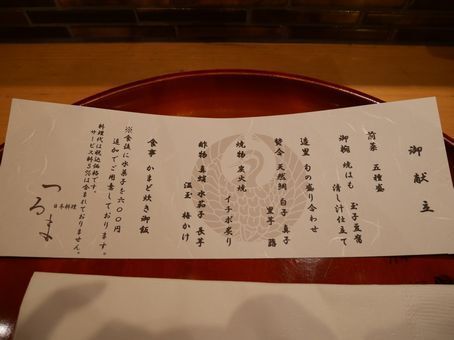 御献立
前菜 五種盛
御椀 焼はも 玉子豆腐
清し汁仕立て
造里 もの盛り合わせ
焚合 天然鯛 白子 真子
里芋 蕗
焼物 炭火焼
イチボ炙り
酢物 真蛸 水茄子 長芋
温玉 梅かけ
食事 かまど炊き御飯
※食後に水菓子を六〇〇円
追加でご用意しております。
料理代は税込価格です。
サービス料5%は含まれておりません。
日本料理